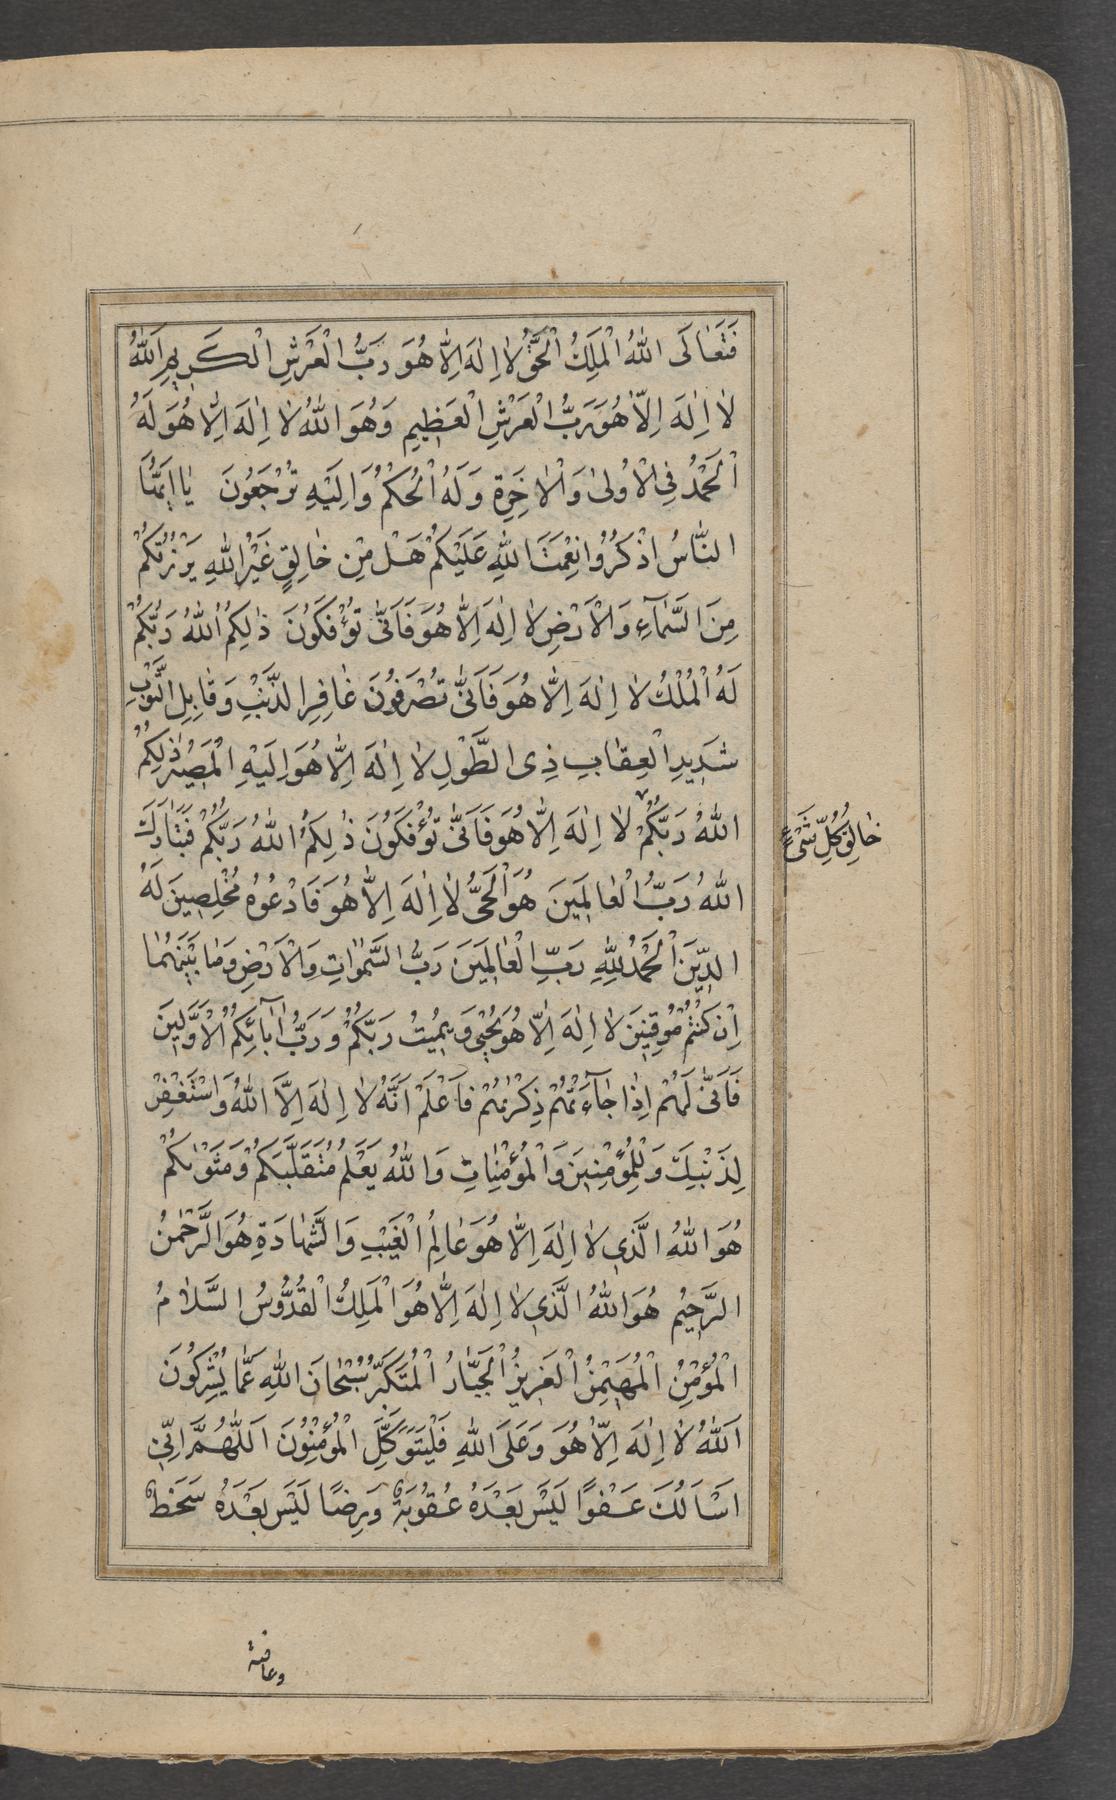 فَتَعَالَى اللهُ الْمَلِكُ الْحَقُّ لَا اِلٰهَ اِلَّا هُوَ رَبُّ الْعَرْشِ الْكَرِيمِ اَللهُ
لَا اِلٰهَ اِلَّا هُوَ رَبُّ الْعَرْشِ الْعَظِيمِ وَهُوَ اللهُ لَا اِلٰهَ اِلَّا هُوَ لَهُ
الْحَمْدُ فِى الْاُولٰى وَالْاٰخِرَةِ وَلَهُ الْحُكْمُ وَاِلَيْهِ تُرْجَعُونَ يَا اَيُّهَا
النَّاسُ اذْكُرُوا نِعْمَتَ اللهِ عَلَيْكُمْ هَلْ مِنْ خَالِقٍ غَيْرُ اللهِ يَرْزُقُكُمْ
مِنَ السَّمَآءِ وَالْاَرْضِ لَا اِلٰهَ اِلَّا هُوَ فَاَنّٰى تُؤْفَكُونَ ذٰلِكُمُ اللهُ رَبُّكُمْ
لَهُ الْمُلْكُ لَا اِلٰهَ اِلَّا هُوَ فَاَنّٰى تُصْرَفُونَ غَافِرِ الذَّنْبِ وَقَابِلِ التَّوْبِ
شَدِيدِ الْعِقَابِ ذِى الطَّوْلِ لَا اِلٰهَ اِلَّا هُوَ اِلَيْهِ الْمَصِيرُ ذٰلِكُمُ
اللهُ رَبُّكُمْ لَا اِلٰهَ اِلَّا هُوَ فَاَنّٰى تُؤْفَكُونَ ذٰلِكُمُ اللهُ رَبُّكُمْ فَتَبَارَكَ
خَالِقُ كُلِّ شَىْءٍ
اللهُ رَبُّ الْعَالَمِينَ هُوَ الْحَىُّ لَا اِلٰهَ اِلَّا هُوَ فَادْعُوهُ مُخْلِصِينَ لَهُ
الدِّينَ الْحَمْدُ لِلّٰهِ رَبِّ الْعَالَمِينَ رَبُّ السَّمٰوَاتِ وَالْاَرْضِ وَمَا بَيْنَهُمَا
اِنْ كُنْتُمْ مُوقِنِينَ لَا اِلٰهَ اِلَّا هُوَ يُحْيِى وَيُمِيتُ رَبُّكُمْ وَرَبُّ اٰبَآئِكُمُ الْاَوَّلِينَ
فَاَنّٰى لَهُمْ اِذَا جَآءَتْهُمْ ذِكْرٰيهُمْ فَاعْلَمْ اَنَّهُ لَا اِلٰهَ اِلَّا اللهُ وَاسْتَغْفِرْ
لِذَنْبِكَ وَلِلْمُؤْمِنِينَ وَالْمُؤْمِنَاتِ وَاللهُ يَعْلَمُ مُتَقَلَّبَكُمْ وَمَثْوٰيكُمْ
هُوَ اللهُ الَّذِى لَا اِلٰهَ اِلَّا هُوَ عَالِمُ الْغَيْبِ وَالشَّهَادَةِ هُوَ الرَّحْمٰنُ
الرَّحِيمُ هُوَ اللهُ الَّذِى لَا اِلٰهَ اِلَّا هُوَ الْمَلِكُ الْقُدُّوسُ السَّلَامُ
الْمُؤْمِنُ الْمُهَيْمِنُ الْعَزِيزُ الْجَبَّارُ الْمُتَكَبِّرُ سُبْحَانَ اللهِ عَمَّا يُشْرِكُونَ
اَللهُ لَا اِلٰهَ اِلَّا هُوَ وَعَلَى اللهِ فَلْيَتَوَكَّلِ الْمُؤْمِنُونَ اَللّٰهُمَّ اِنِّى
اَسْاَلُكَ عَفْوًا لَيْسَ بَعْدَهُ عُقُوبَةٌ وَرِضًا لَيْسَ بَعْدَهُ سَخَطٌ
وعافية